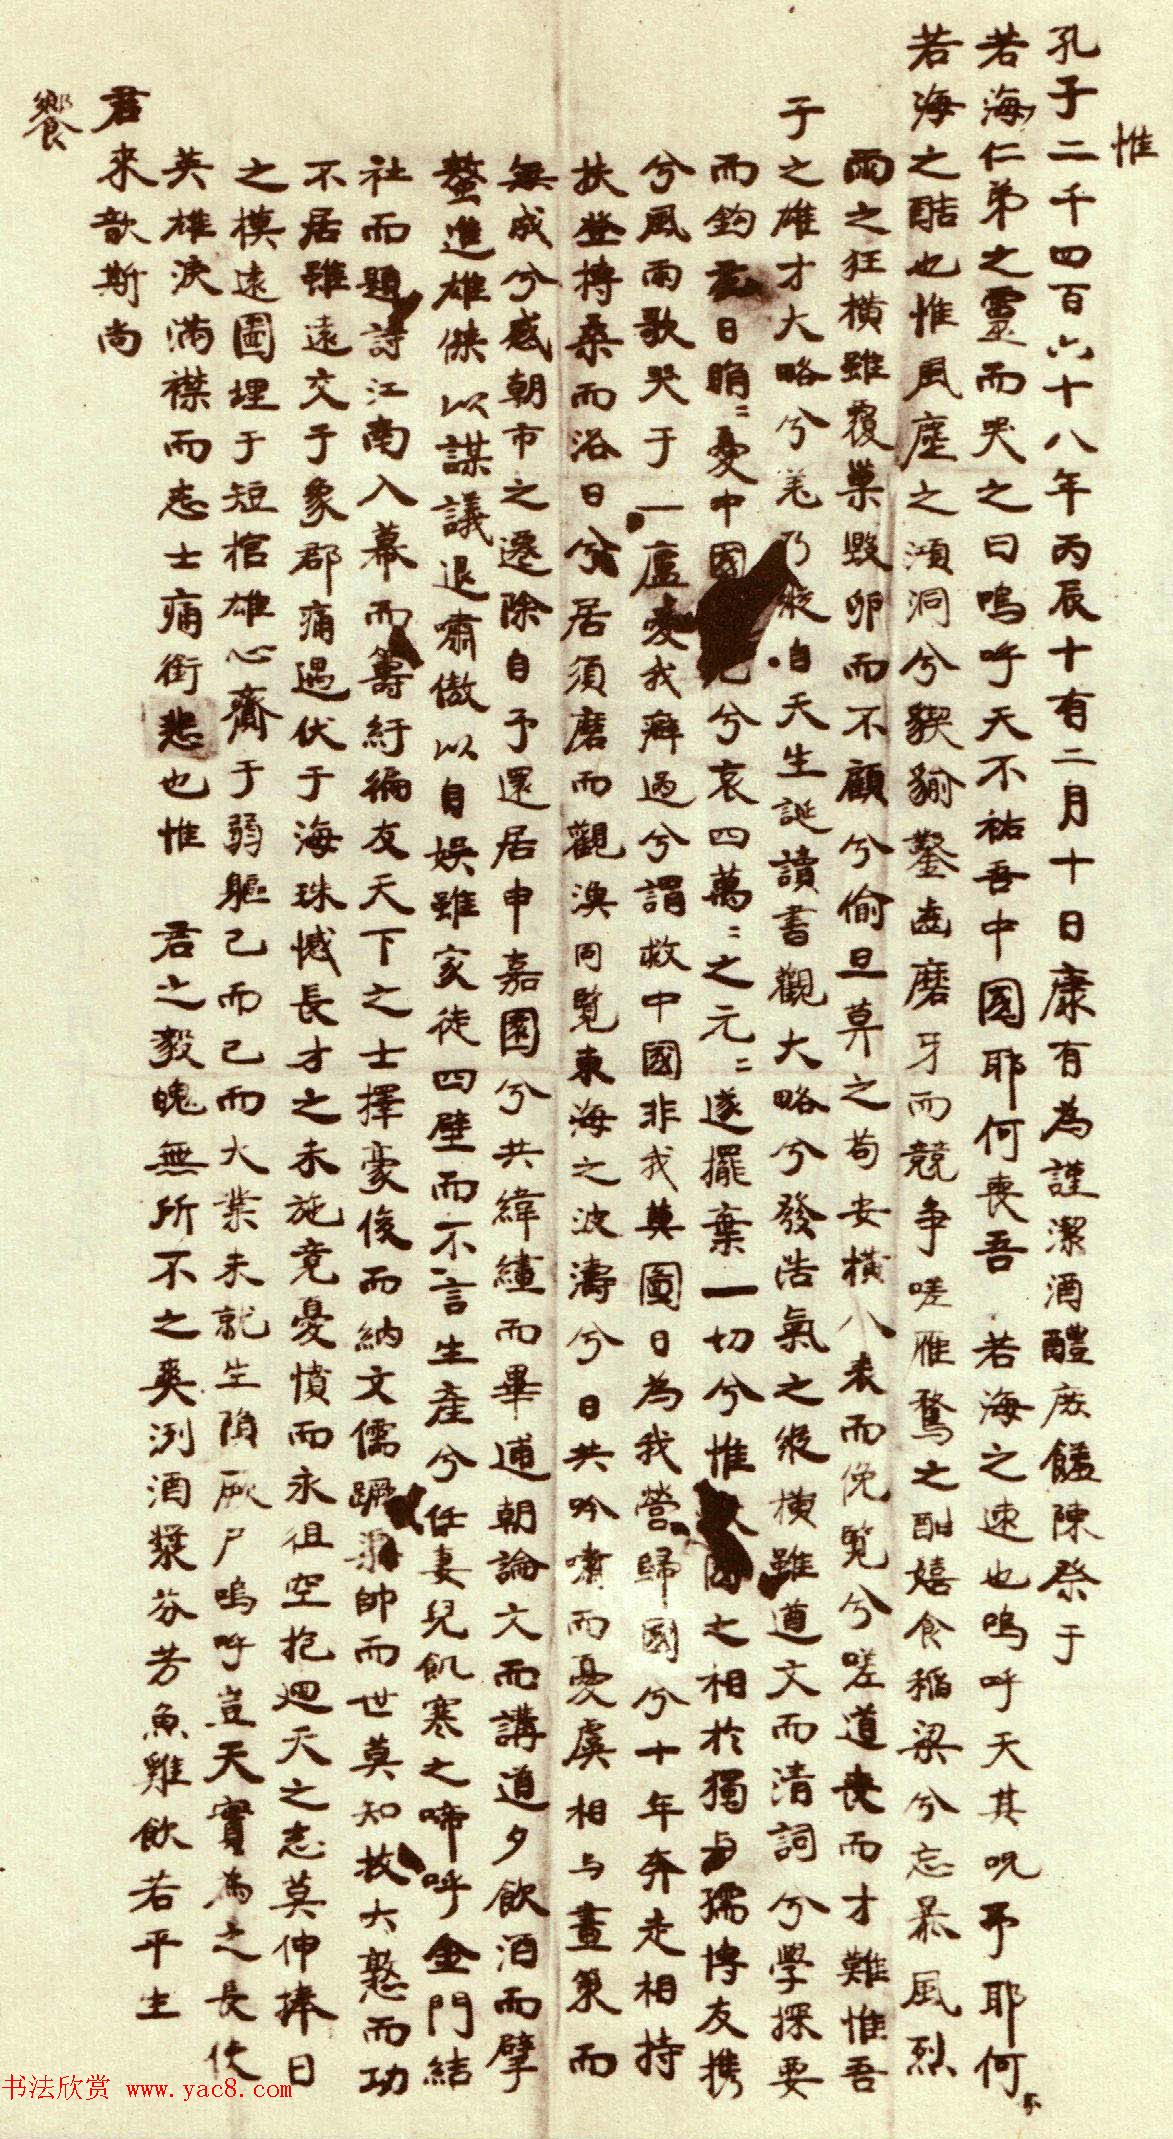 惟
孔子二千四百六十八年丙辰十有二月十日康有為謹潔酒醴庶饈陳祭于
若海仁弟之靈而哭之曰嗚呼天不祐吾中國耶何喪吾 若海之速也嗚呼天其呪予耶何
若海之酷也惟風塵之澒洞兮貘貐鑿齒磨牙而競爭嗟雁鶩之酣嬉食稲梁兮忘暴風烈
雨之狂橫雖覆巢毀卵而不顧兮偷旦莫之苟安橫八表而俛覧兮嗟道喪而才難惟吾
子之雄才大略兮羌乃縱自天生誕讀書觀大略兮發浩氣之縱橫雖遒文而清詞兮學探要
而鈎玄日睊〻憂中國兮哀四萬〻之元〻遂擺棄一切兮惟國之相於獨與孺博友攜
兮風雨歌哭于一廬愛我癖過兮謂救中國非我莫圖日為我營歸國兮十年奔走相持
扶登搏桑而浴日兮居須磨而觀渙同覧東海之波濤兮日共吟嘯而憂虞相与畫策而
無成兮感朝市之遷除自予還居申嘉園兮共緯繣而畢逋朝論文而講道夕飲酒而擘
螯進雄傑以謀議退嘯傲以自娛雖家徒四壁而不言生產兮任妻兒飢寒之啼呼金門結
社而題詩江南入幕而籌紆徧友天下之士擇豪俊而納文儒蹶帥而世莫知拔大憝而功
不居雖遠交于象郡痛遇伏于海珠憾長才之未施竟憂憤而永徂空抱迴天之志莫伸捧日
之模遠圖埋于短棺雄心齎于弱軀已而已而大業未就生隕厥尸嗚呼豈天實為之長伏
英雄淚滿襟而志士痛銜悲也惟 君之毅魄無所不之奠洌酒漿芬芳魚雞飲若平生
君来歆斯尚
饗
书法欣赏 www.yac8.com